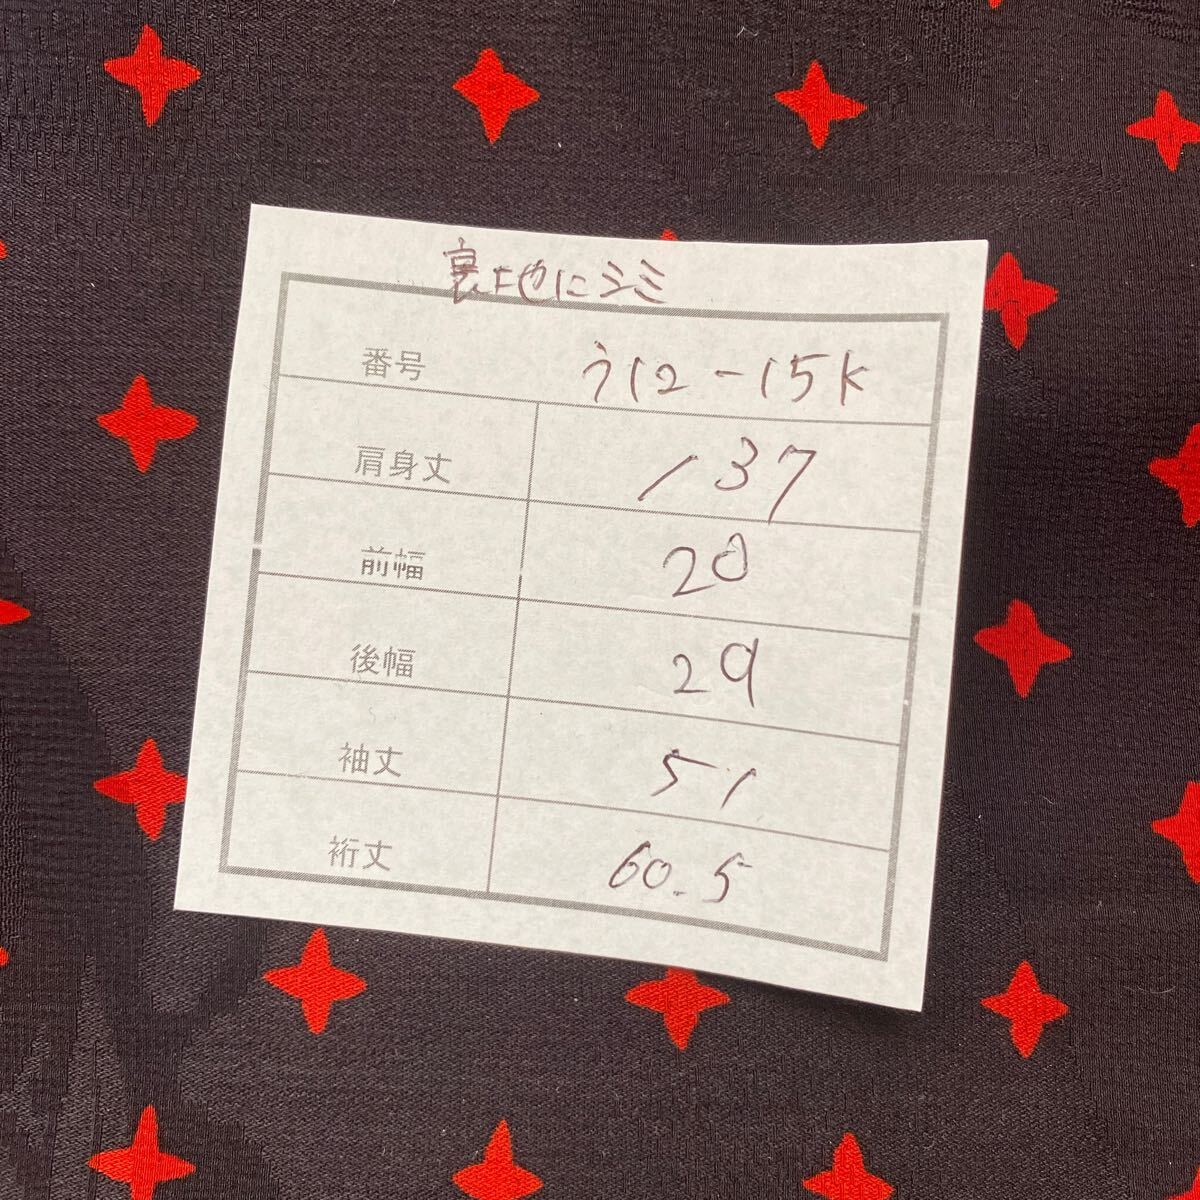 裏地にシミ
番号 う12-15K
肩身丈 137
前幅 20
後幅 29
袖丈 51
裄丈 60.5